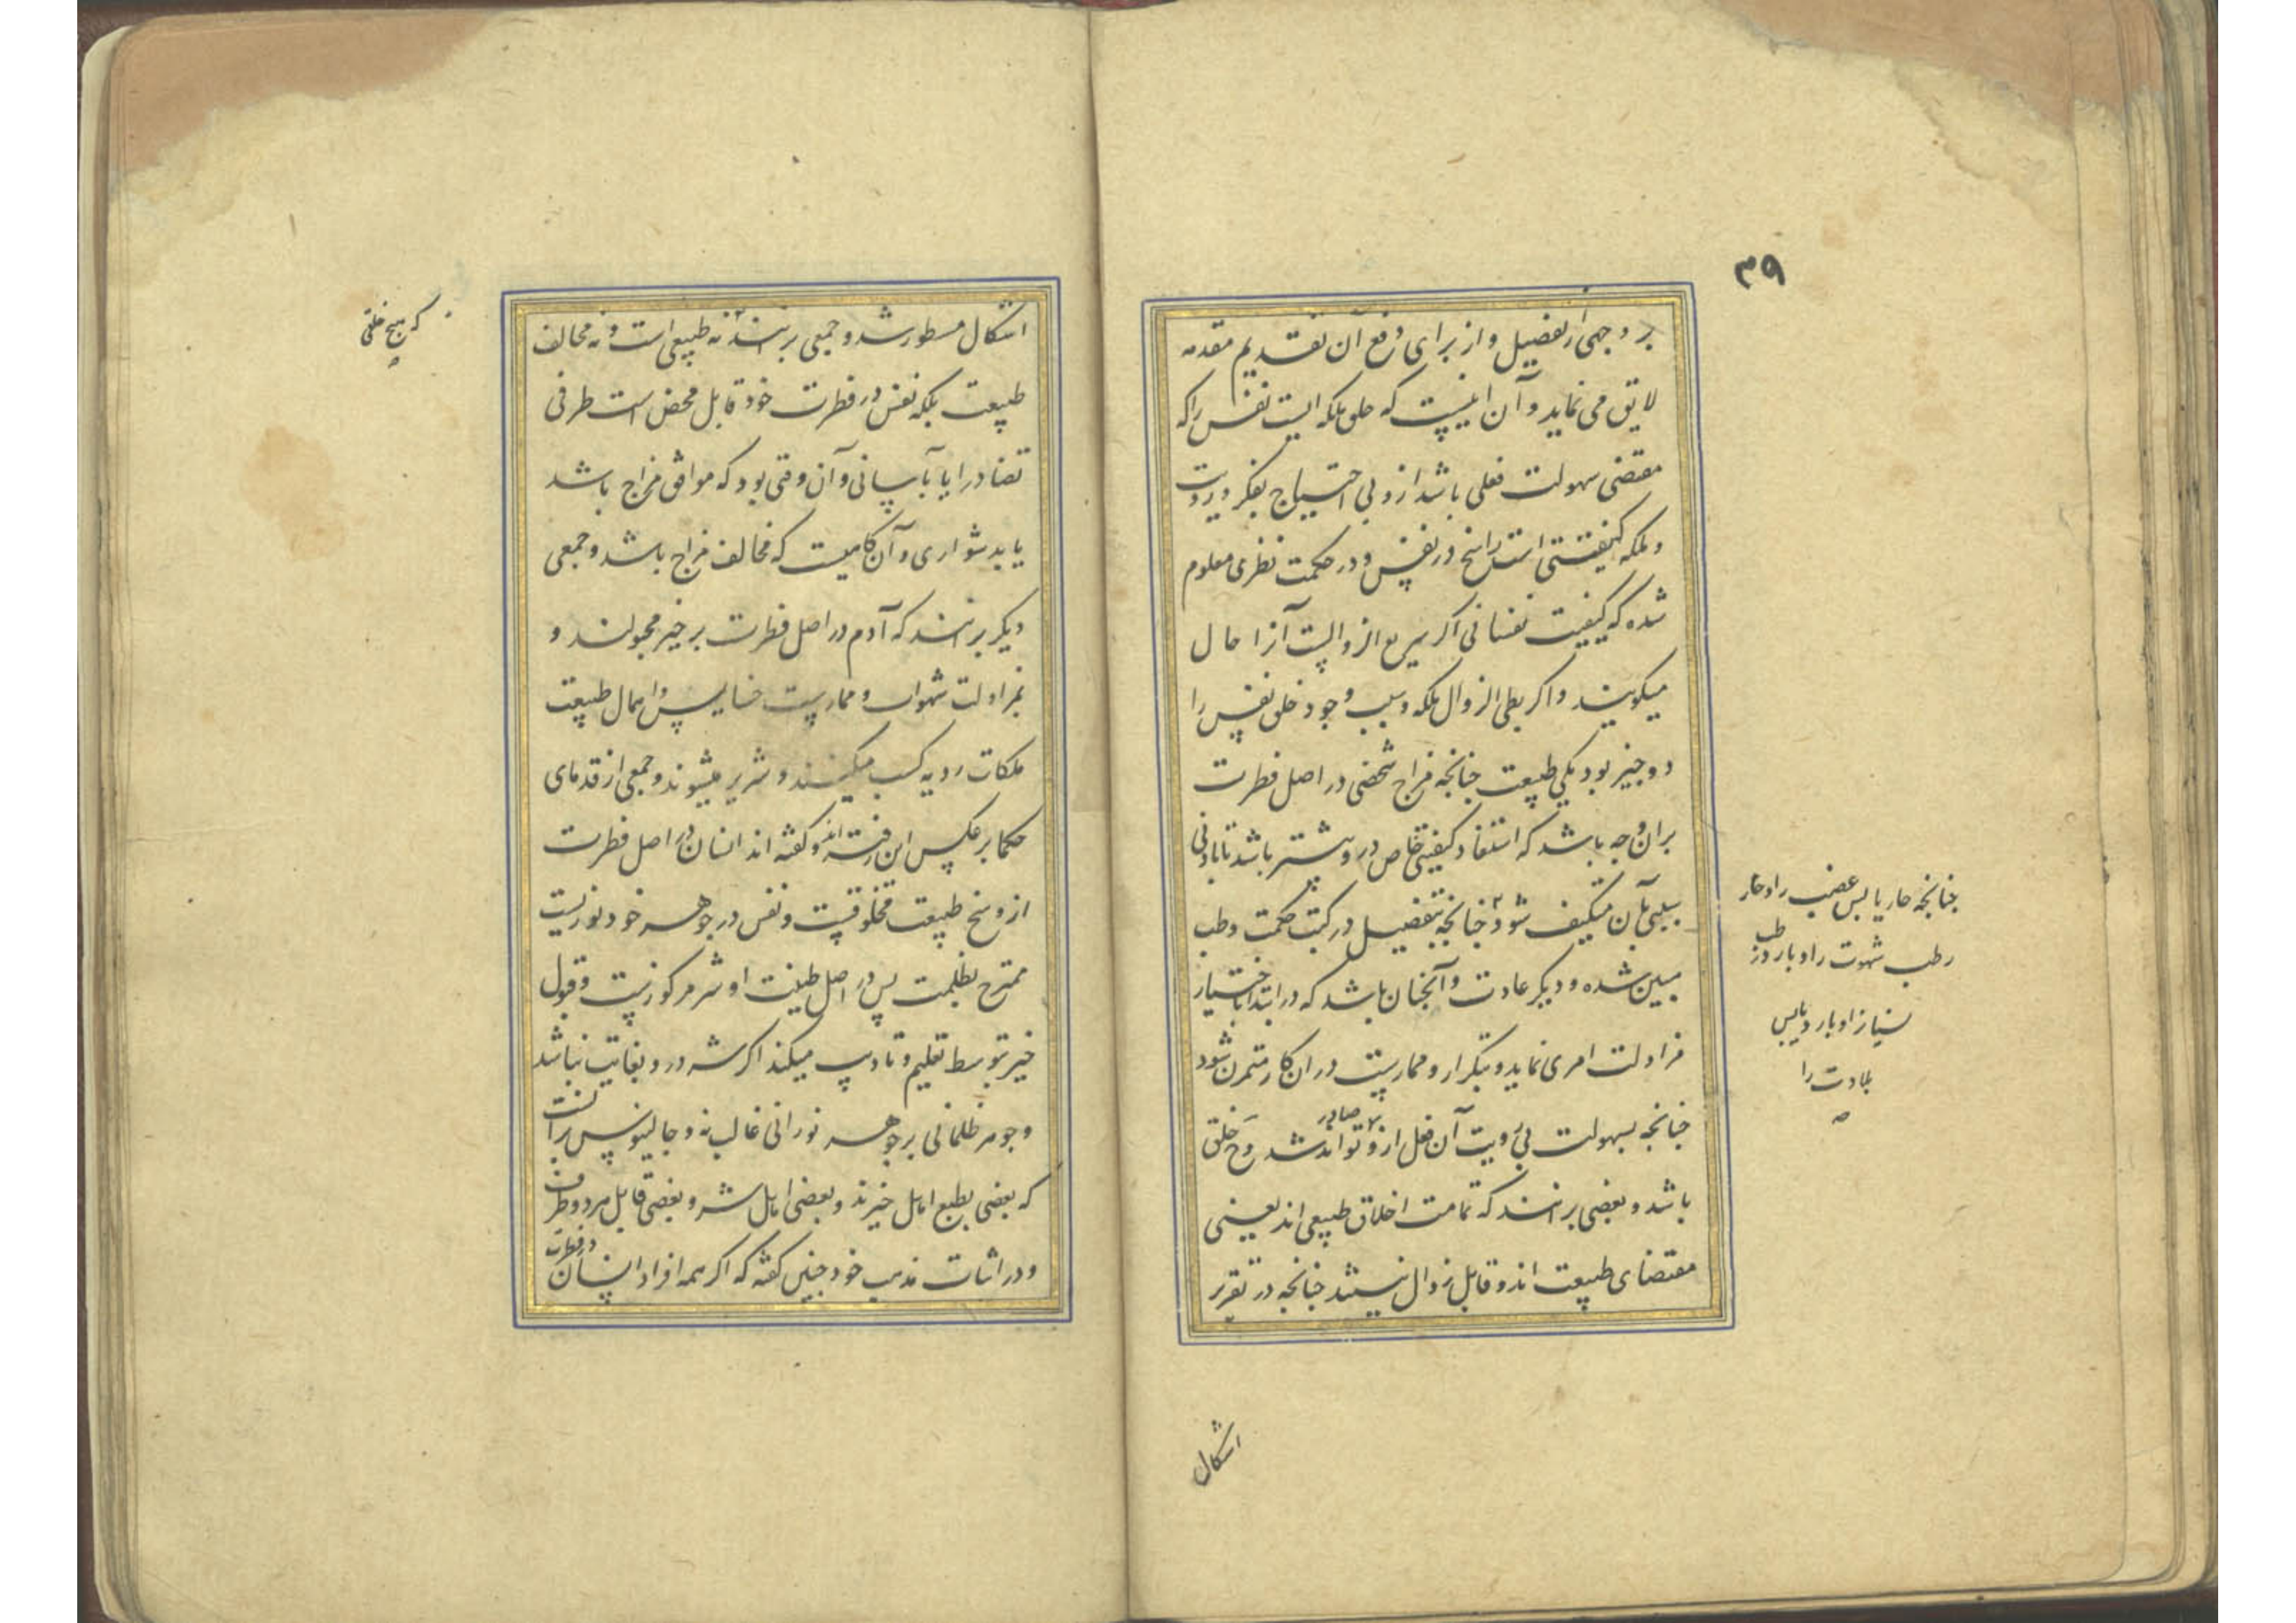 ۳۹
بر وجهی از تفصیل و از برای دفع آن تقدیم مقدمه
لایق می نماید و آن اینست که خلق ملکه ایست نفس را که
مقتضی سهولت فعلی باشد ازو بی احتیاج بفکر و رویت
و ملکه کیفیتی است راسخ در نفس و در حکمت نظری معلوم
شده که کیفیت نفسانی اکر سریع الزوالست آنرا حال
میکویند و اکر بطی الزوال ملکه و سبب وجود خلق نفس را
دو چیز بود یکی طبیعت چنانچه مزاج شخصی در اصل فطرت
بران وجه باشد که استعداد کیفیتی خاص درو بیشتر باشد تا بادنی
سببی بآن متکیف شود چنانچه بتفصیل در کتب حکمت و طب
مبین شده و دیکر عادت و آنچنان باشد که در ابتدا باختیار
مزاولت امری نماید و بتکرار و ممارست در ان کار متمرن شود
چنانچه بسهولت بی رویت آن فعل ازو صادر تواند شد و ح خلق
باشد و بعضی برانند که تمامت اخلاق طبیعی اند یعنی
مقتضای طبیعت اند و قابل زوال نیستند چنانچه در تقریر
چنانچه حار یابس غضب را و حار
رطب شهوت را و بارد رطب
نسیانرا و بارد یابس
بلادت را
اشکال
اشکال مسطور شد و جمعی برانند نه طبیعی است و نه مخالف
طبیعت بلکه نفس در فطرت خود قابل محض است طرفی
تضاد را یا بآسانی و آن وقتی بود که موافق مزاج باشد
یا بدشواری و آن کاهیست که مخالف مزاج باشد و جمعی
دیکر برانند که آدم در اصل فطرت بر خیر مجبولند و
بمزاولت شهوات و ممارست خسایس و اهمال طبیعت
ملکات ردیه کسب میکنند و شریر میشوند و جمعی از قدمای
حکما بر عکس این رفته اند و کفته اند انسان در اصل فطرت
از وسخ طبیعت مخلوقست و نفس در جوهر خود نوریست
ممتزج بظلمت پس در اصل طینت او شر مرکوزست و قبول
خیر بتوسط تعلیم و تادیب میکند اکر شر درو بغایت نباشد
و جوهر ظلمانی بر جوهر نورانی غالب نه و جالینوس بر آنست
که بعضی بطبع اهل خیرند و بعضی اهل شر و بعضی قابل هر دو طرف
و در اثبات مذهب خود چنین کفته که اکر همه افراد انسان در فطرت
که هیچ خلقی